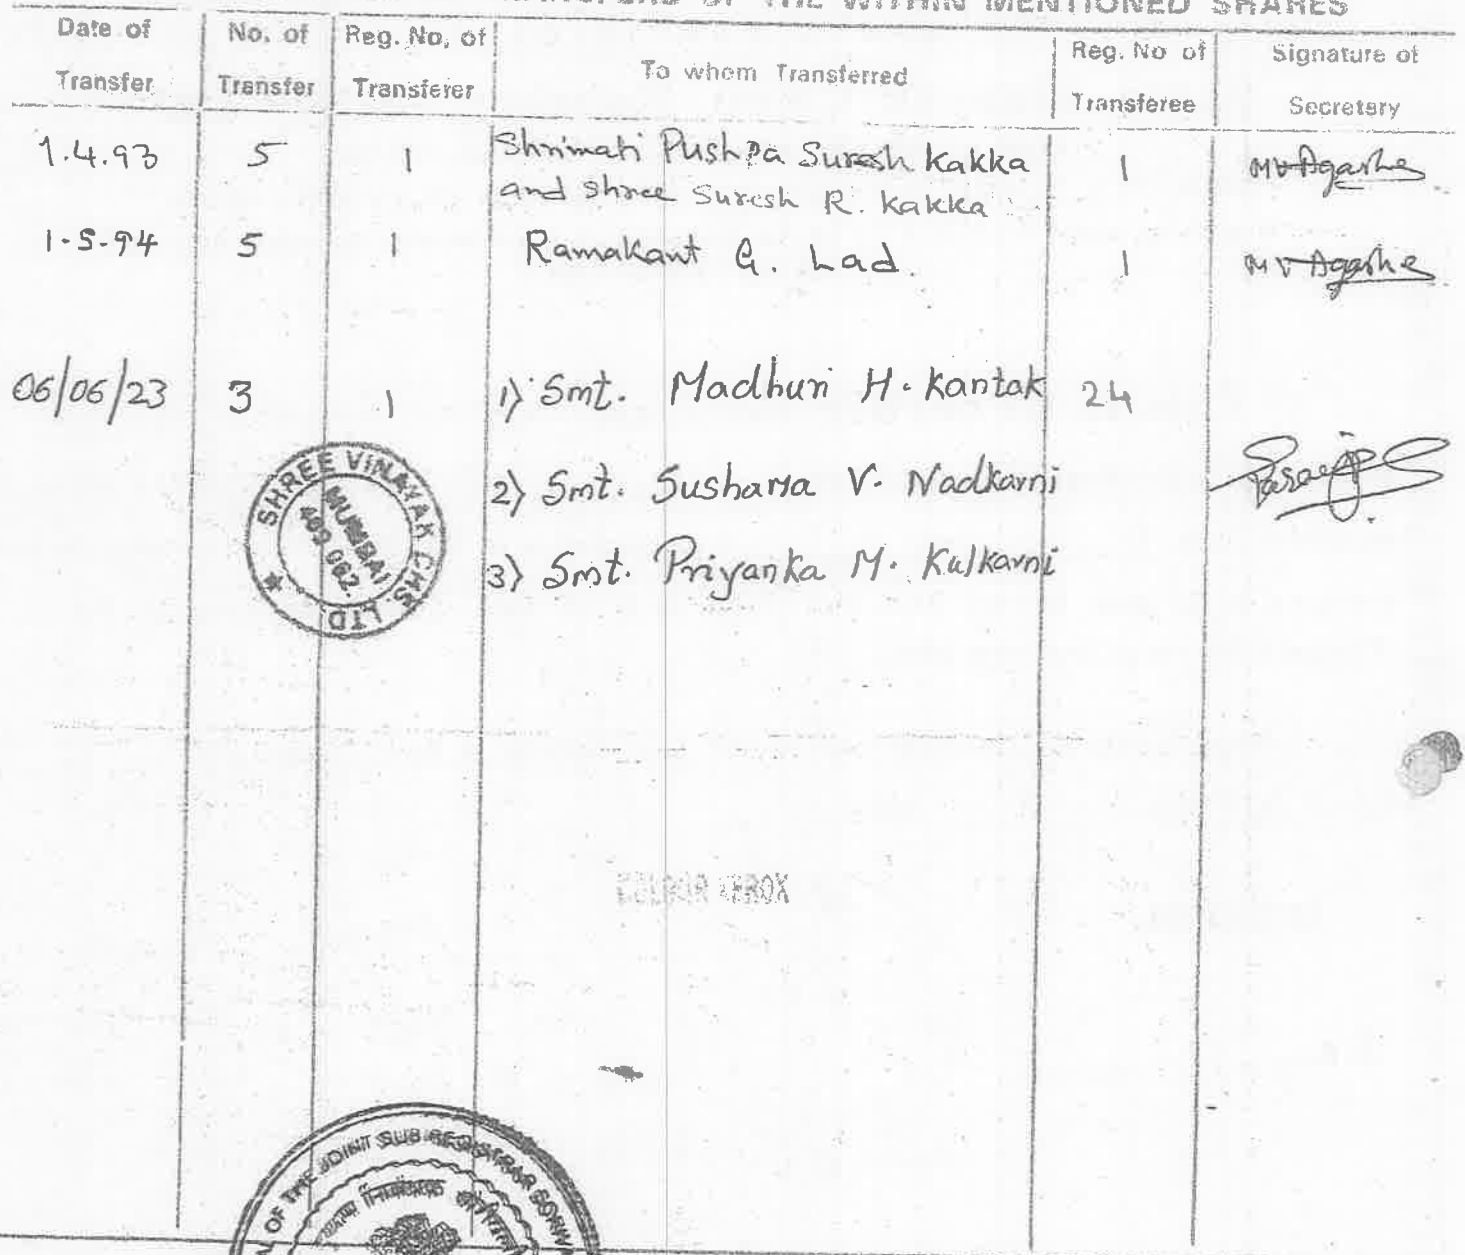 OF THE WITHIN MENTIONED SHARES
Date of Transfer | No. of Transfer | Reg. No. of Transferer | To whom Transferred | Reg. No of Transferee | Signature of Secretary
1.4.93 | 5 | 1 | Shrimati Pushpa Suresh Kakka | 1 | MV Agashe
and Shree Suresh R. Kakka
1-5-94 | 5 | 1 | Ramakant G. Lad. | 1 | MV Agashe
06/06/23 | 3 | 1 | 1) Smt. Madhuri H. Kantak | 24
2) Smt. Sushama V. Nadkarni
3) Smt. Priyanka M. Kulkarni
SHREE VINAYAK CHS. LTD.
MUMBAI
XEROX
OF THE JOINT SUB REGISTRAR